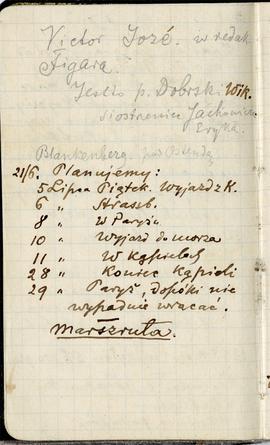 Victor José. w redak
Figara.
Jest to p. Dobrski Wik.
siostrzeniec Jachowicz
Eryka.
Blankenberg. pod Ostendą
21/6. Planujemy:
5 Lipca Piątek. Wyjazd z K.
6 „ Strasb.
8 „ W Paryżu
10 „ Wyjazd do morza
11 „ W kąpielach
28 „ Koniec kąpieli
29 „ Paryż, dopóki nie
wypadnie wracać.
Marszruta.